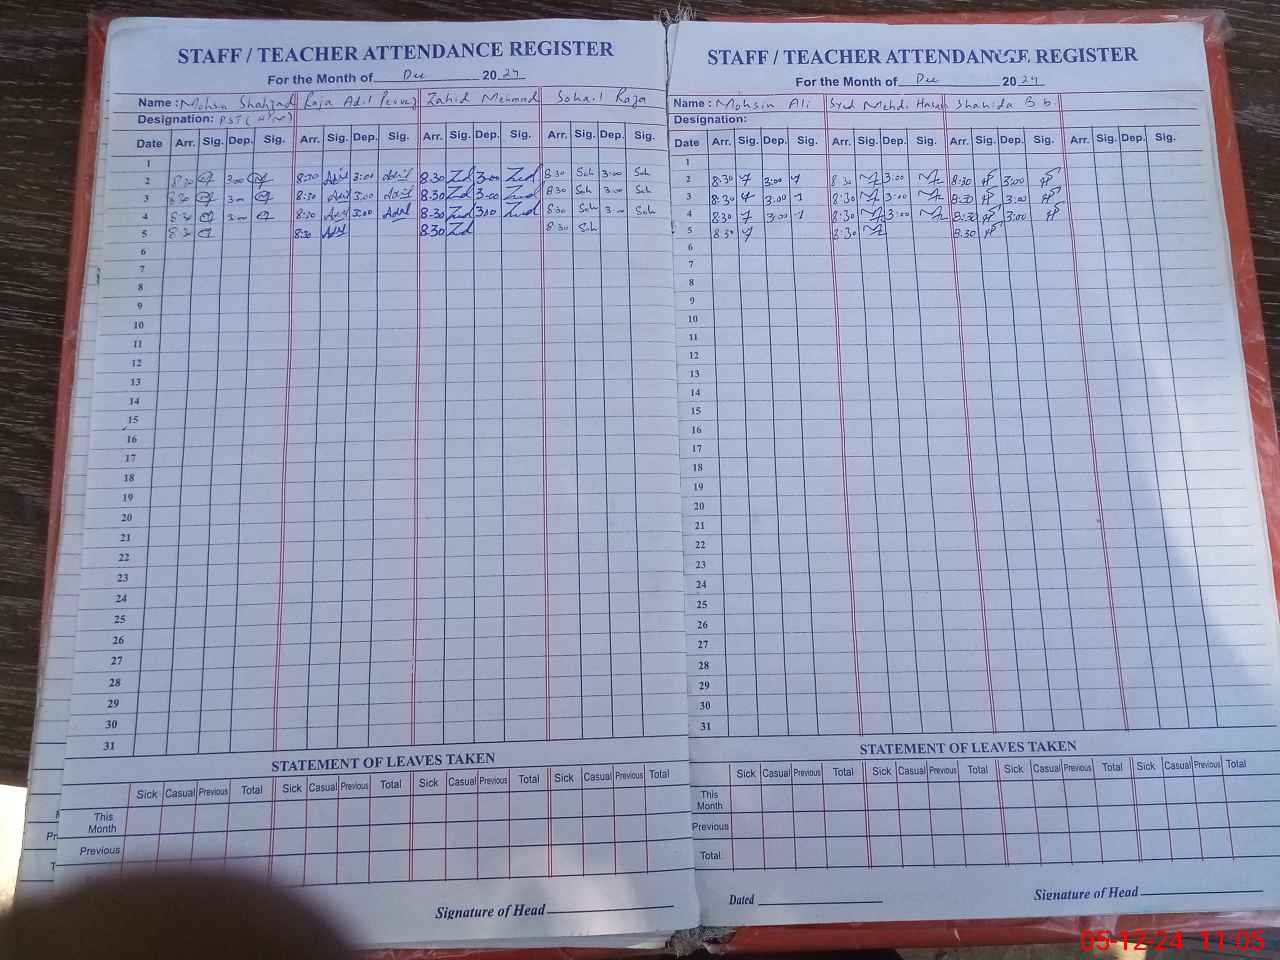 STAFF / TEACHER ATTENDANCE REGISTER
For the Month of Dec 2024
Name : Mohsin Shahzad Raja Adil Pervez Zahid Mehmood Sohail Raja
Designation: PST (H/M)
Date Arr. Sig. Dep. Sig. Arr. Sig. Dep. Sig. Arr. Sig. Dep. Sig. Arr. Sig. Dep. Sig.
1
2 8:30 3:00 8:30 Adil 3:00 Adil 8:30 Zd 3:00 Zd 8:30 Soh 3:00 Soh
3 8:30 3:00 8:30 Adil 3:00 Adil 8:30 Zd 3:00 Zd 8:30 Soh 3:00 Soh
4 8:30 3:00 8:30 Adil 3:00 Adil 8:30 Zd 3:00 Zd 8:30 Soh 3:00 Soh
5 8:30 8:30 Adil 8:30 Zd 8:30 Soh
6
7
8
9
10
11
12
13
14
15
16
17
18
19
20
21
22
23
24
25
26
27
28
29
30
31
STATEMENT OF LEAVES TAKEN
Sick Casual Previous Total Sick Casual Previous Total Sick Casual Previous Total Sick Casual Previous Total
This Month
Previous
Signature of Head
STAFF / TEACHER ATTENDANCE REGISTER
For the Month of Dec 2024
Name : Mohsin Ali Syed Mehdi Hasan Shahida Bibi
Designation:
Date Arr. Sig. Dep. Sig. Arr. Sig. Dep. Sig. Arr. Sig. Dep. Sig. Arr. Sig. Dep. Sig.
1
2 8:30 3:00 8:30 3:00 8:30 3:00
3 8:30 3:00 8:30 3:00 8:30 3:00
4 8:30 3:00 8:30 3:00 8:30 3:00
5 8:30 8:30 8:30
6
7
8
9
10
11
12
13
14
15
16
17
18
19
20
21
22
23
24
25
26
27
28
29
30
31
STATEMENT OF LEAVES TAKEN
Sick Casual Previous Total Sick Casual Previous Total Sick Casual Previous Total Sick Casual Previous Total
This Month
Previous
Total
Dated Signature of Head
05-12-24 11:05